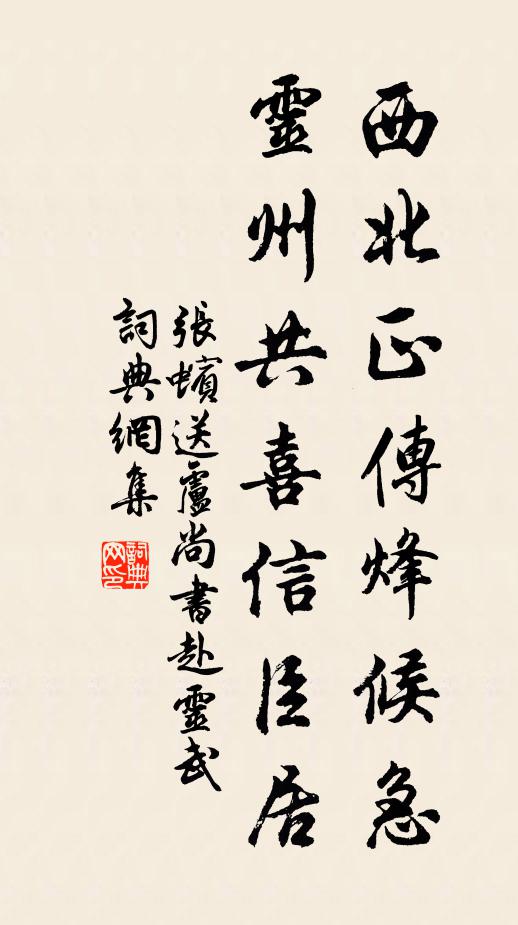 西北正傳烽候急
靈州共喜信臣居
張蠙送盧尚書赴靈武
詞典網集
詞典网印